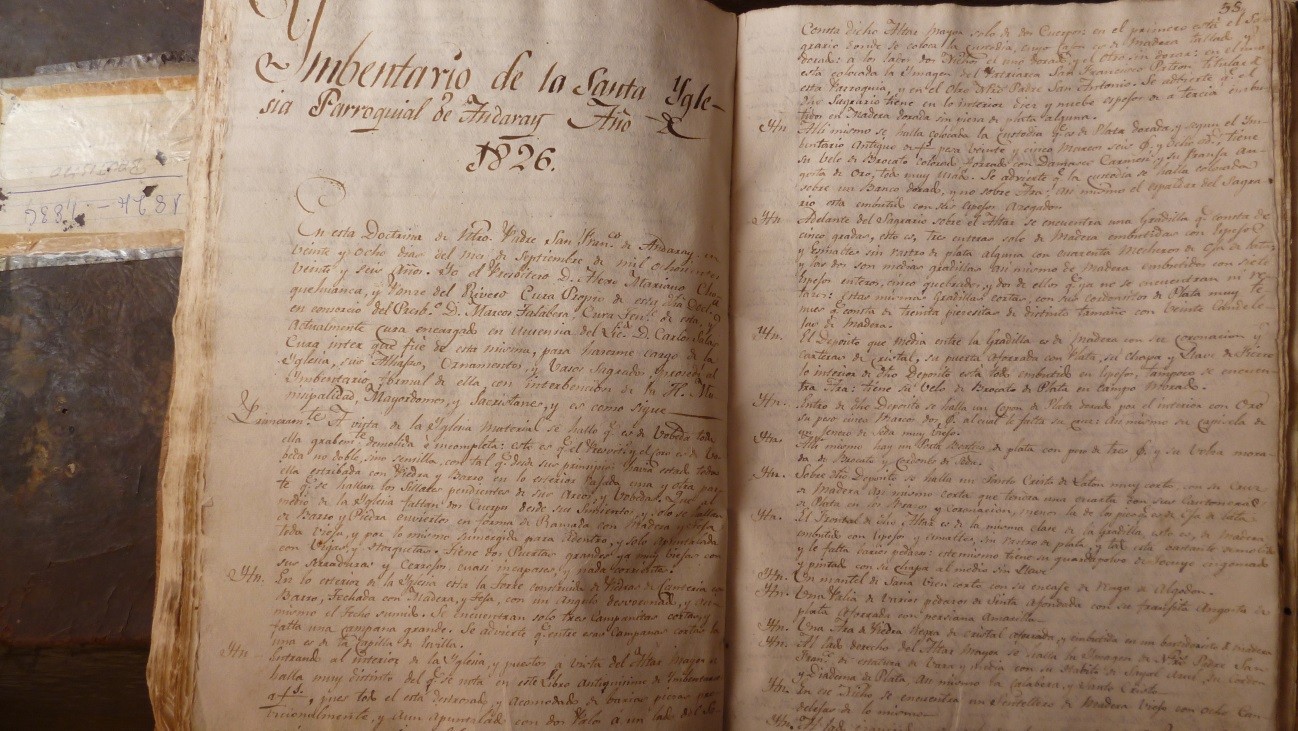 Y
Ymbentario de la Santa Ygle-
sia Parroquial de Andaray Año de
1826.
En esta Doctrina de Ntro. Padre San Franco. de Andaray en
veinte y ocho dias del mes de Septiembre de mil ochocientos
veinte y seis años. Yo el Presbitero D. Mariano
quehuanca, y Ponze del Rivero Cura Propio de esta
en consorcio del Presbo. D. Marcos Falabera, Cura de esta, y
Actualmente Cura encargado en ausencia del Lic. D. Carlos Salas
Cura inter que fué de esta misma, para hacerme cargo de la
Yglesia, sus Alhajas, Ornamentos, y Vasos Sagrados
Ymbentario formal de ella, con interbencion de la H. Mu-
nicipalidad, Mayordomos, y Sacristanes, y es como sigue
Primeramte. A vista de la Yglesia Material se halló qe. es de Vobeda toda
ella demolida é incompleta: esto es qe. el y el Coro es de Vo-
beda no doble, sino sencilla, con tal qe. desde sus principios havia estado toda
ella estribada con Piedra y Barro, en lo exterior bajada una y otra par-
te qe. se hallan los Sillares pendientes de sus Arcos, y Vobedas. Que al
medio de la Yglesia faltan dos Cuerpos desde sus Simientos, y solo se hallan
de Barro y Piedra en forma de Ramada con Madera y
toda vieja, y por lo mismo para dentro, y solo apuntalada
con Vigas, y Horquetas: tiene dos Puertas grandes ya muy viejas con
sus Cerraduras, y Cerrojos, cuasi incapaces, y nada
Ytn. En lo exterior de la Yglesia está la torre construida de Piedras de Canteria con
Barro, Techada con Madera, y Teja, con un Angulo y asi
mismo el techo sumido. Se encuentran solo tres Campanitas cortas, y
falta una campana grande. Se advierte qe. entre esas Campanas cortas la
una es de la Capilla de
Ytn. Entrando al interior de la Yglesia, y puestos a vista del Altar Mayor se
halla muy distinto del qe. se nota en este Libro Antiquisimo de Ymbentario
a f. 3., pues todo el está y Acomodado de varias piezas pro-
vicionalmente, y aun apuntalado con dos Palos a un lado del Sa-
58
Consta dicho Altar mayor solo de dos Cuerpos: en el primero está el Sa-
grario donde se coloca la Custodia, cuyo Cajon es de Madera tallada y
dorada; a los lados dos Nichos, el uno dorado, y el otro sin dorar: en el uno
está colocada la Ymagen del Patriarca San Francisco Patron titular de
esta Parroquia, y en el Otro Ntro. Padre San Antonio. Se advierte qe. el
dho Sagrario tiene en lo interior diez y nueve espejos de a tercia embu-
tidos en Madera dorada sin pieza de plata alguna.
Ytn. Alli mismo se halla colocada la Custodia qe. es de Plata dorada, y segun el Ym-
bentario Antiguo de f. 3. pesa veinte y cinco Marcos seis y ocho tiene
su Velo de Brocato colorado forrado con Damasco Carmesi y su Franja An-
gosta de Oro, todo muy usado. Se advierte qe. la custodia se halla colocada
sobre un Banco dorado, y no sobre Ara: Asi mismo el espaldar del Sagra-
rio está embutido con seis espejos Azogados
Ytn. Adelante del Sagrario sobre el Altar se encuentra una Gradilla qe. consta de
cinco gradas, esto es, tres enteras solo de Madera embutidas con espejos
y esmaltes sin rastro de plata alguna con cuarenta Mecheros de Oja de lata
y las dos son medias gradillas Asi mismo de Madera embutidos con siete
espejos enteros, cinco quebrados, y dos de ellos qe. ya no se encuentran ni re-
tazos: Estas mismas Gradillas cortas, con sus de Plata muy te-
nues qe. consta de treinta piecesitas de distinto tamaño con veinte Candele-
jas de Madera.
Ytn. El Deposito que media entre la Gradilla es de Madera con su Coronacion, y
de Cristal, su puerta Aforrada con Plata, su Chapa y Llave de Fierro
lo interior de dho Deposito está todo embutido en espejos, tampoco se encuen-
tra Ara: tiene su Velo de Brocato de Plata en campo Morado.
Ytn. Dentro de dho Deposito se halla un Copon de Plata dorada por el interior con Oro
su peso cinco Marcos dos al cual le falta su Cruz: Asi mismo su Capicela de
un genero de seda muy viejo.
Ytn. Alli mismo hay un de plata con peso de tres y su Velo mora-
do de Brocato y Cordonsito de Seda.
Ytn. Sobre dho Deposito se halla un Santo Cristo de Laton muy corto, con su Cruz
de Madera Asi mismo corta que tendrá una cuarta con sus Cantoneras
de Plata en los Brazos y Coronacion, menos la de los pies qe. es de Oja de lata.
Ytn. El Frontal de dho Altar es de la misma clase de la Gradilla, esto es, de Madera
embutida con espejos y esmaltes, sin rastro de plata, y todo está bastante deteriorado
y le falta varios pedazos: Asi mismo tiene su guardapolvo de Tocuyo engomado
y pintado con su chapa al medio sin Llave.
Ytn. Un mantel de Sana bien corto con su encaje de Ringo de Algodon.
Ytn. Una Palia de varios pedazos de Sinta Afondada con su franjita Angosta de
plata Aforrada con persiana Amarilla.
Ytn. Una Ara de Piedra negra de Cristal aforrada, y embutida en un de madera
Ytn. Al lado derecho del Altar Mayor se halla la Ymagen de Ntro. Padre San
Franco. de estatura de Vara y Media con su Habito de Sayal Azul, su Cordon
y Diadema de Plata Asi mismo la Calabera, y Santo Cristo
Ytn. En este Nicho se encuentran un de Madera Viejo con ocho Can-
delejas de lo mismo
Ytn. Al lado izquierdo
1824 — 1836